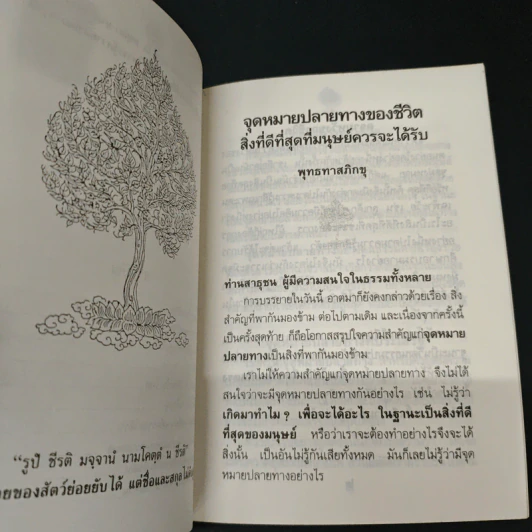 "รูปํ ชีรติ มจฺจานํ นามโคตฺตํ น ชีรติ
ยของสัตว์ย่อยยับได้ แต่ชื่อและสกุลไม่
จุดหมายปลายทางของชีวิต
สิ่งที่ดีที่สุดที่มนุษย์ควรจะได้รับ
พุทธทาสภิกขุ
ท่านสาธุชน ผู้มีความสนใจในธรรมทั้งหลาย
การบรรยายในวันนี้ อาตมาก็ยังคงกล่าวด้วยเรื่อง สิ่ง
สำคัญที่พากันมองข้าม ต่อไปตามเดิม และเนื่องจากครั้งนี้
เป็นครั้งสุดท้าย ก็ถือโอกาสสรุปใจความสำคัญแก่จุดหมาย
ปลายทางเป็นสิ่งที่พากันมองข้าม
เราไม่ให้ความสำคัญแก่จุดหมายปลายทาง จึงไม่ได้
สนใจว่าจะมีจุดหมายปลายทางกันอย่างไร เช่น ไม่รู้ว่า
เกิดมาทำไม ? เพื่อจะได้อะไร ในฐานะเป็นสิ่งที่ดี
ที่สุดของมนุษย์ หรือว่าเราจะต้องทำอย่างไรจึงจะได้
สิ่งนั้น เป็นอันไม่รู้กันเสียทั้งหมด มันก็เลยไม่รู้ว่ามีจุด
หมายปลายทางอย่างไร